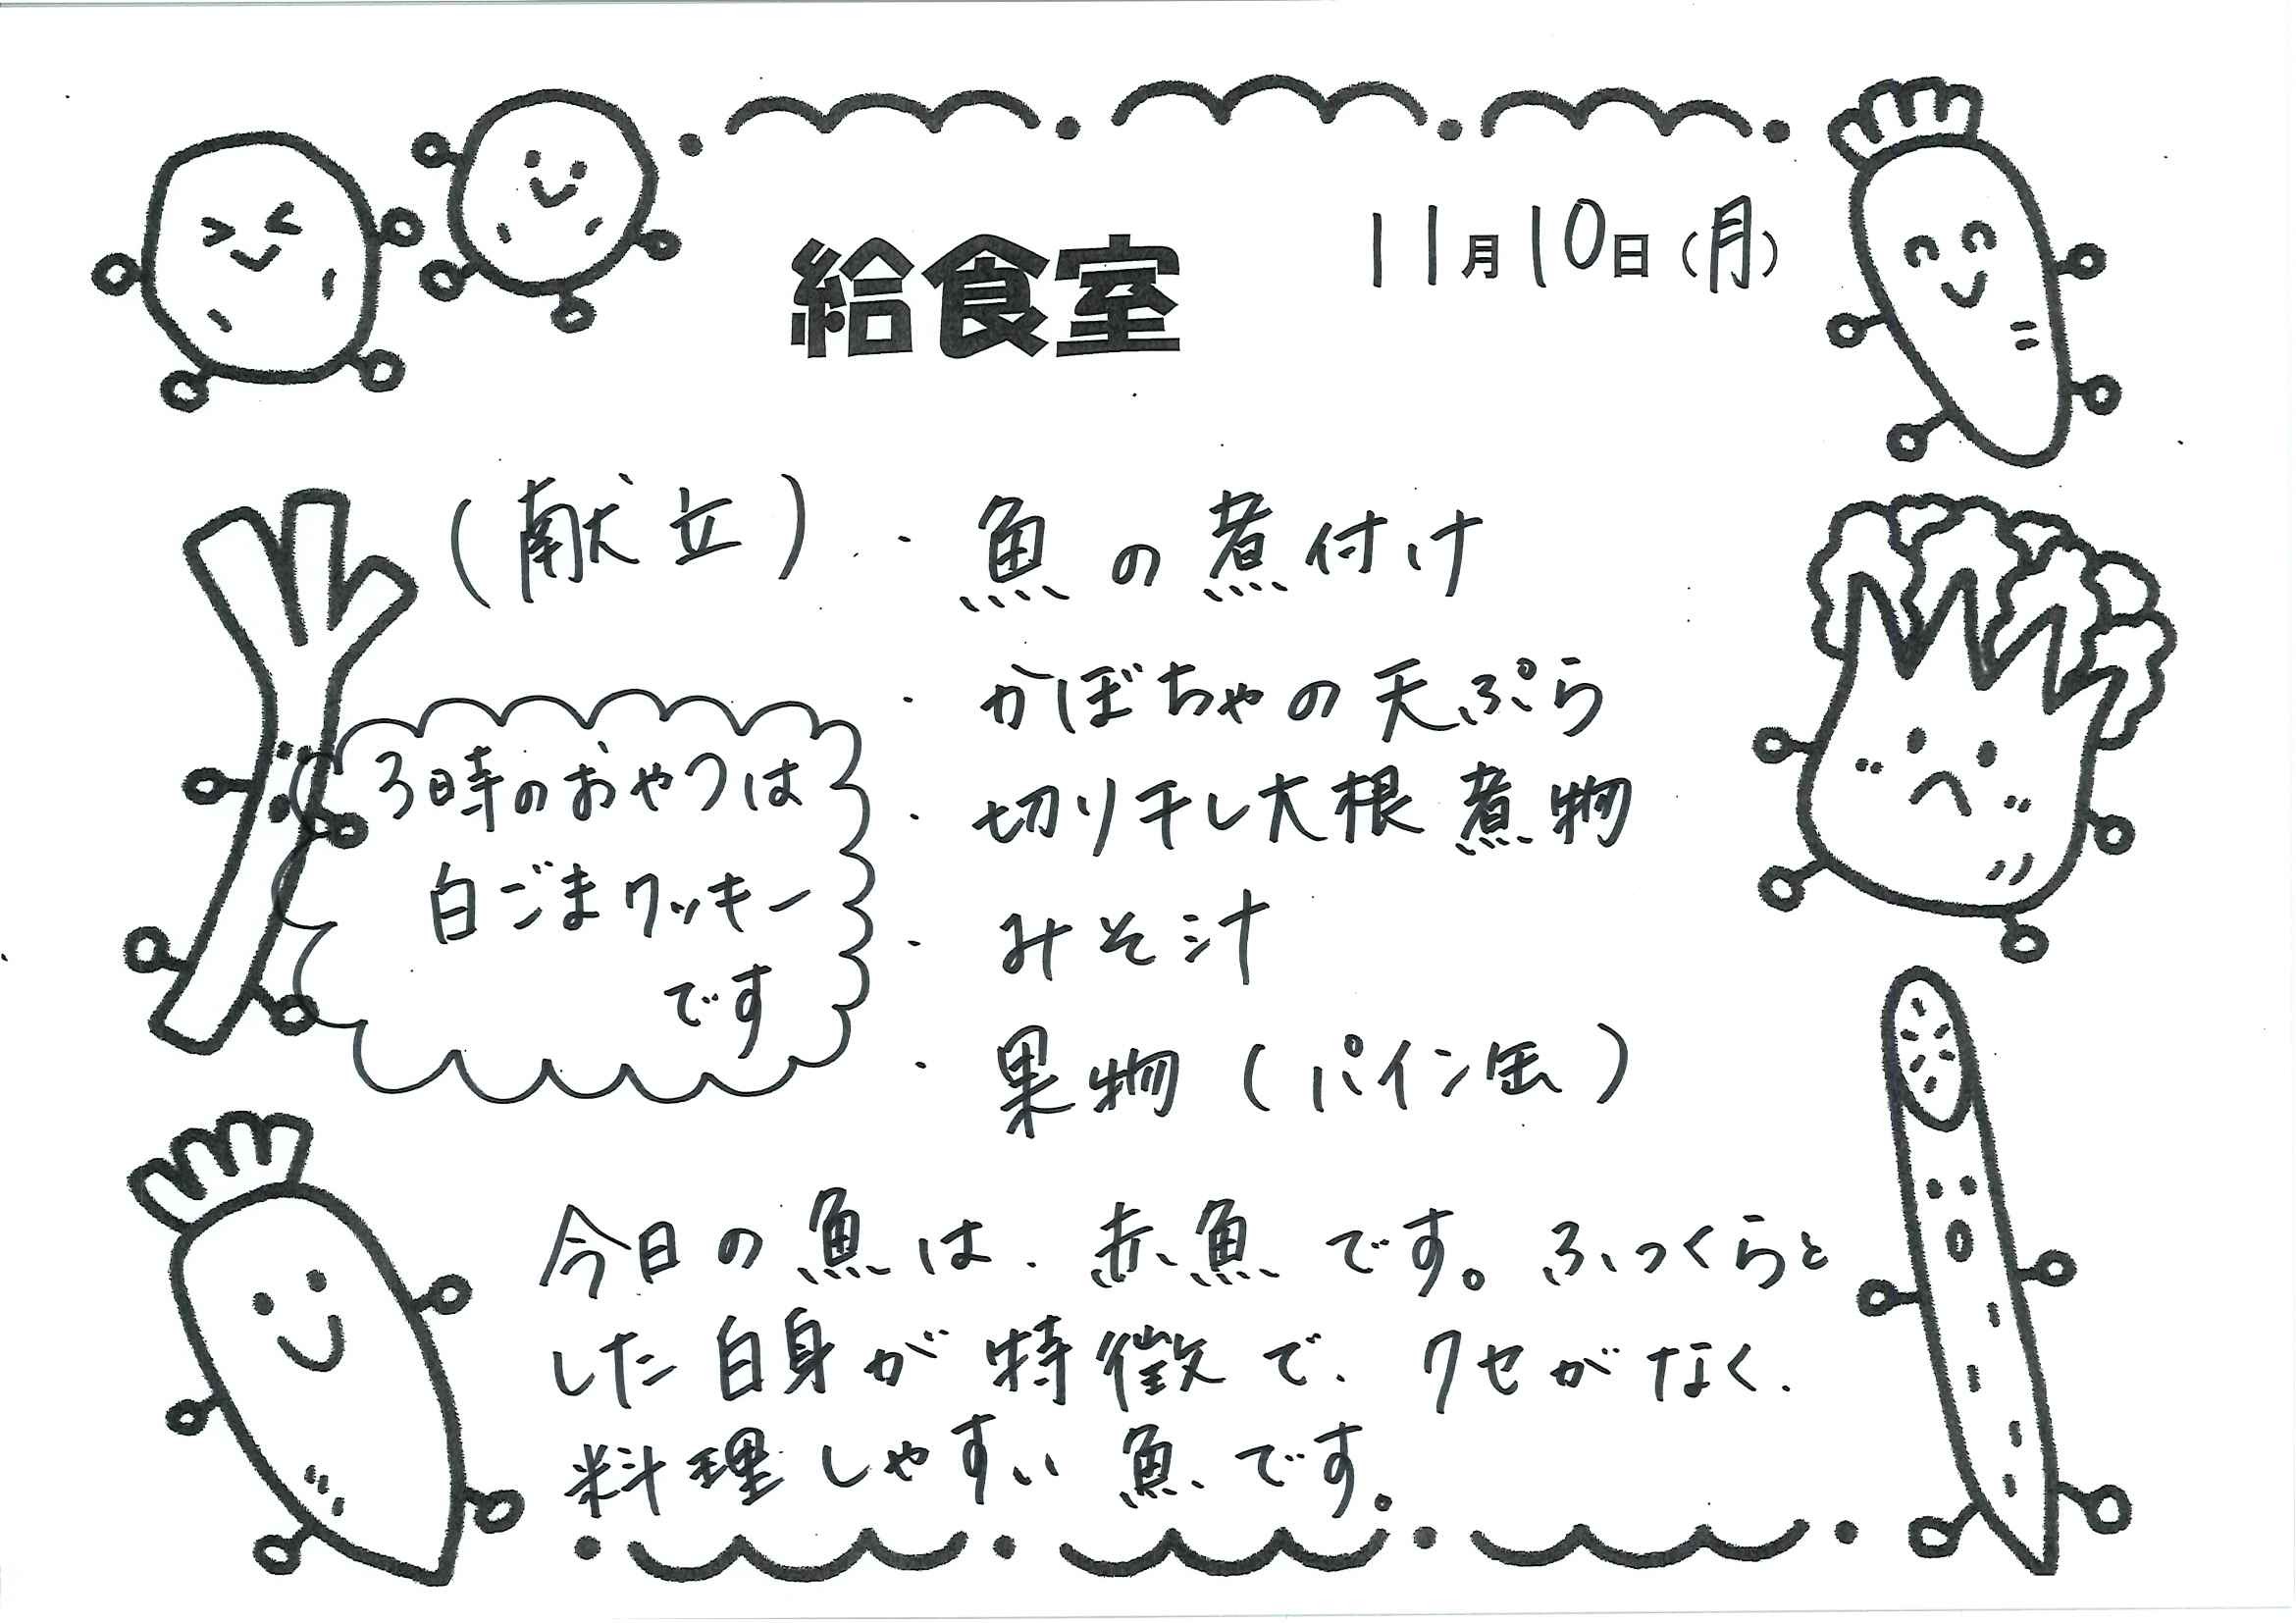 給食室
11月10日(月)
(献立)・・魚の煮付け
・かぼちゃの天ぷら
・切り干し大根煮物
・みそ汁
・果物(パイン缶)
3時のおやつは
白ごまクッキー
です
今日の魚は、赤魚です。ふっくらと
した白身が特徴で、クセがなく、
料理しやすい魚です。